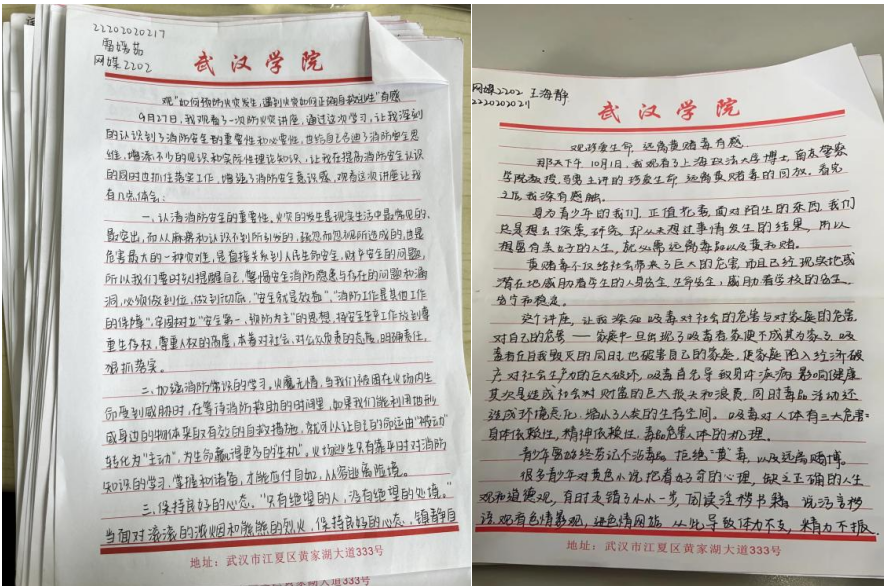 2220202017
雷瑶茹
网媒2202
武汉学院
观"如何预防火灾发生,遇到火灾如何正确自救逃生"有感
9月27日,我观看了一次防火灾讲座,通过这次学习,让我深刻
的认识到了消防安全的重要性和必要性,也给自己色迪了消防安全思
维,增添不少的见识和实际性理论知识,让我在提高消防安全认识
的同时也抓住落实工作,增强了消防安全意识感,观看这次讲座让我
有几点体会:
一、认清消防安全的重要性。火灾的发生是现实生活中最常见的、
最突出,而从麻痹和认识不到所引发的,疏忽而忽视所造成的,也是
危害最大的一种灾难,是直接关系到人民生命安全,财产安全的问题,
所以我们要时刻提醒自己,警惕安全消防隐患与存在的问题和漏
洞,必须做到位,做到动前,"安全就是效益","消防工作是其他工作
的保障",牢固树立"安全第一,预防为主"的思想,将安全生产工作放到尊
重生存权,尊重人权的高度,本着对社会,对公众负责的态度,明确责任,
狠抓落实。
二、加强消防常识的学习。火魔无情,当我们被困在火场内生
命受到威胁时,在等待消防救助的时间里,如果我们能利用地形
或身边的物体采取有效的自救措施,就可以让自己的命运由"被动"
转化为"主动",为生命赢得更多的"生机"。火场逃生只有靠平时对消防
知识的学习、掌握和储备,才能应付自如,从容逃离险境。
三、保持良好的心态。"只有绝望的人,没有绝望的处境。"
当面对滚滚的浓烟和熊熊的烈火,保持良好的心态、镇静自
地址:武汉市江夏区黄家湖大道333号
网媒2202 王海静
2220202021
武汉学院
观珍爱生命 远离黄赌毒有感
那天下午,10月1日,我观看了上海政法大学博士,南京警察
学院教授,马勇主讲的珍爱生命 远离黄赌毒的回放。看完
之后,我深有感触。
身为青少年的我们,正值花季,面对陌生的东西,我们
总是想去探索、研究,却从未想过事情发生的结果,所以
想要有美好的人生,就必需远离毒品以及黄和赌。
黄赌毒不仅给社会带来了巨大的危害,而且已经现实地或
潜在地威胁着学生的人身安全、生命安全,威胁着学校的安全、
安宁和稳定。
这个讲座,让我深知吸毒对社会的危害与对家庭的危害,
对自己的危害——家庭中一旦出现了吸毒者,家便不成其为家了,吸
毒者在自我毁灭的同时,也破害自己的家庭,使家庭陷入经济破
产,对社会生产力的巨大破坏,吸毒首先导致身体疾病,影响健康
其次是造成社会对财富的巨大损失和浪费,同时毒品活动还
造成环境恶化,缩小了人类的生存空间。吸毒对人体有三大危害:
身体依赖性,精神依赖性,毒品危害人体的机理。
青少年要始终劳记不沾毒品,拒绝"黄"毒,以及远离赌博。
很多青少年对黄色小说抱着好奇的心理,缺乏正确的人生
观和道德观,有时走错了小小一步,阅读淫秽书籍,说污言秽
语,观看色情影视,进色情网站,从此导致体力不支,精力不振,
地址:武汉市江夏区黄家湖大道333号